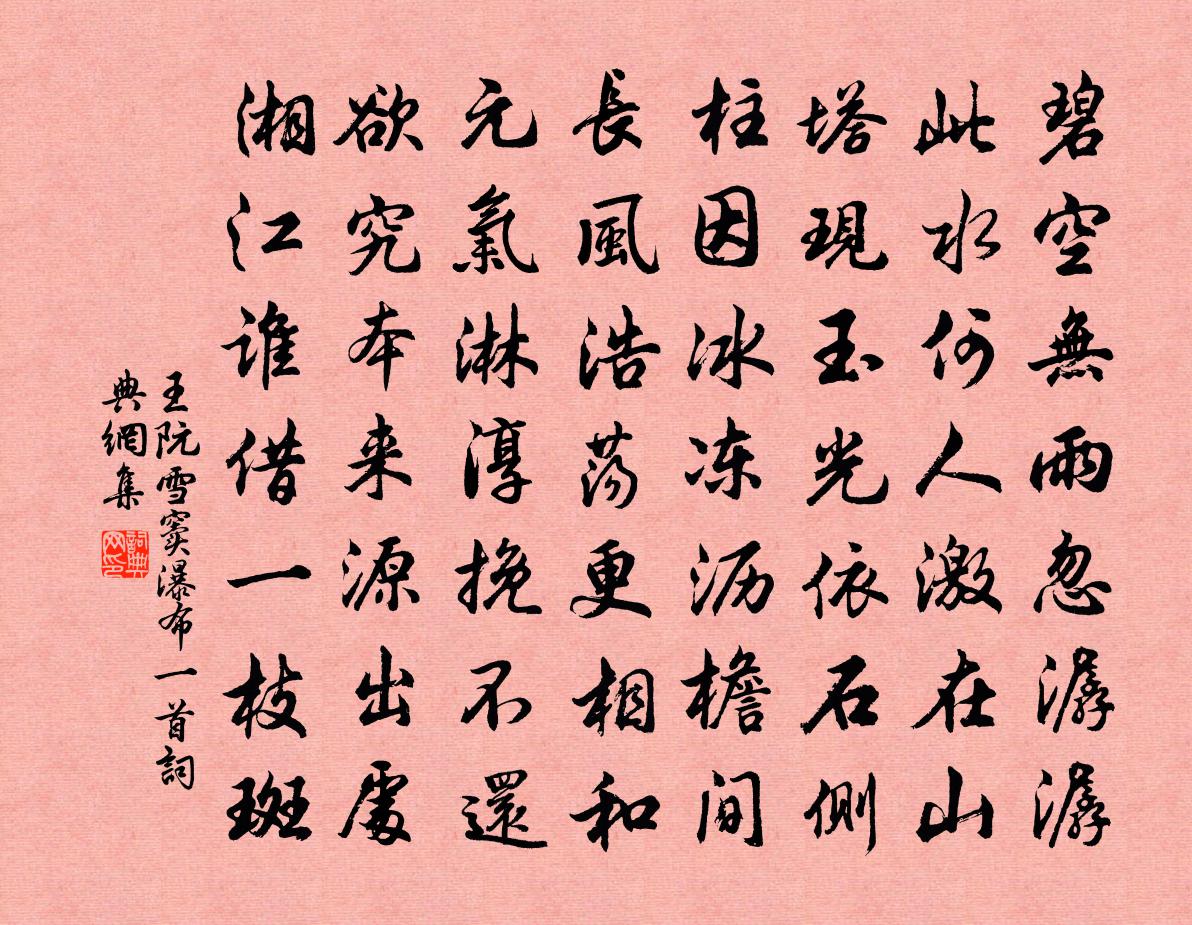 碧空無雨忽潺潺
此水何人激在山
塔現玉光依石側
柱因冰冻沥檐间
長風浩荡更相和
元氣淋淳挽不還
欲究本来源出處
湘江谁借一枝斑
王阮雪窦瀑布一首詞
典網集
詞典网印